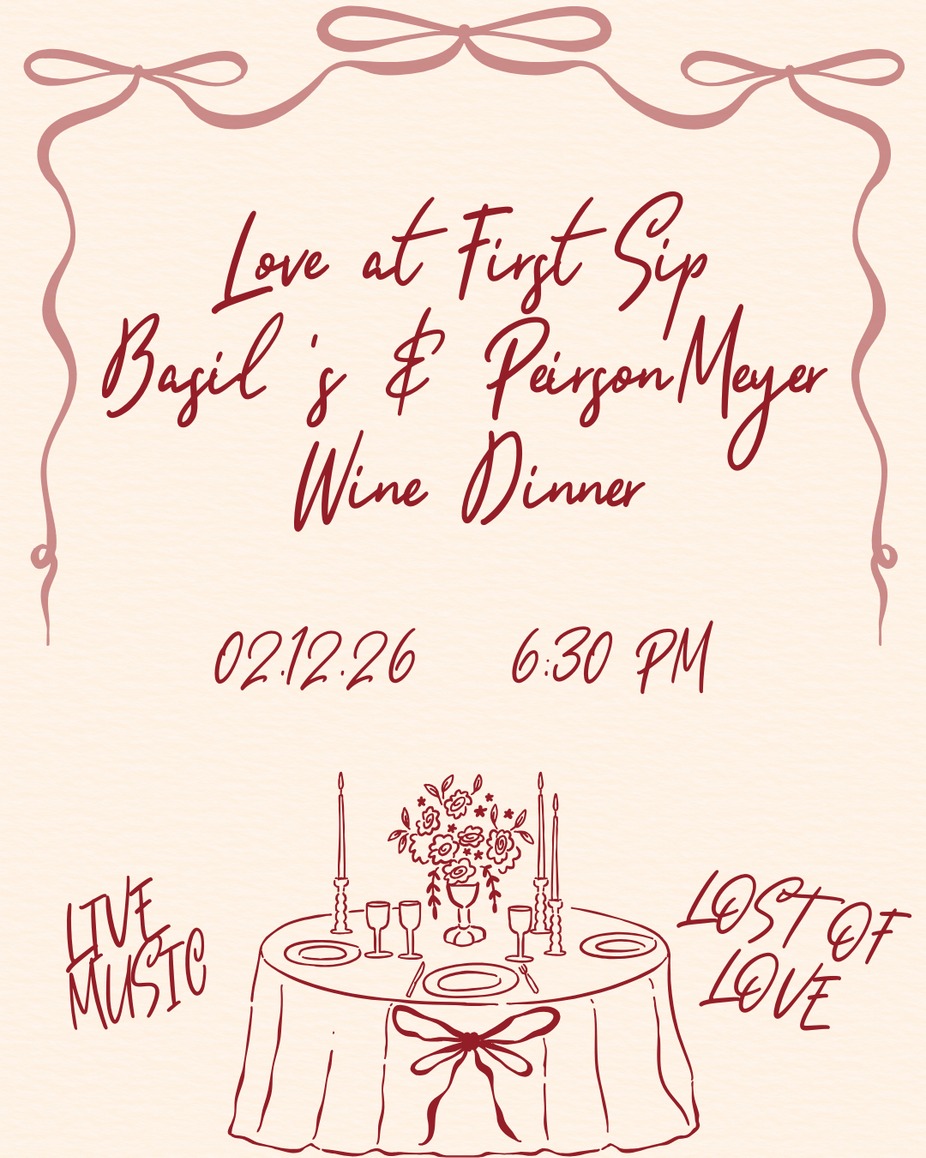 Love at First Sip
Basil 's & PeirsonMeyer
Wine Dinner
02.12.26 6:30 PM
LIVE
MUSIC
LOST OF
LOVE